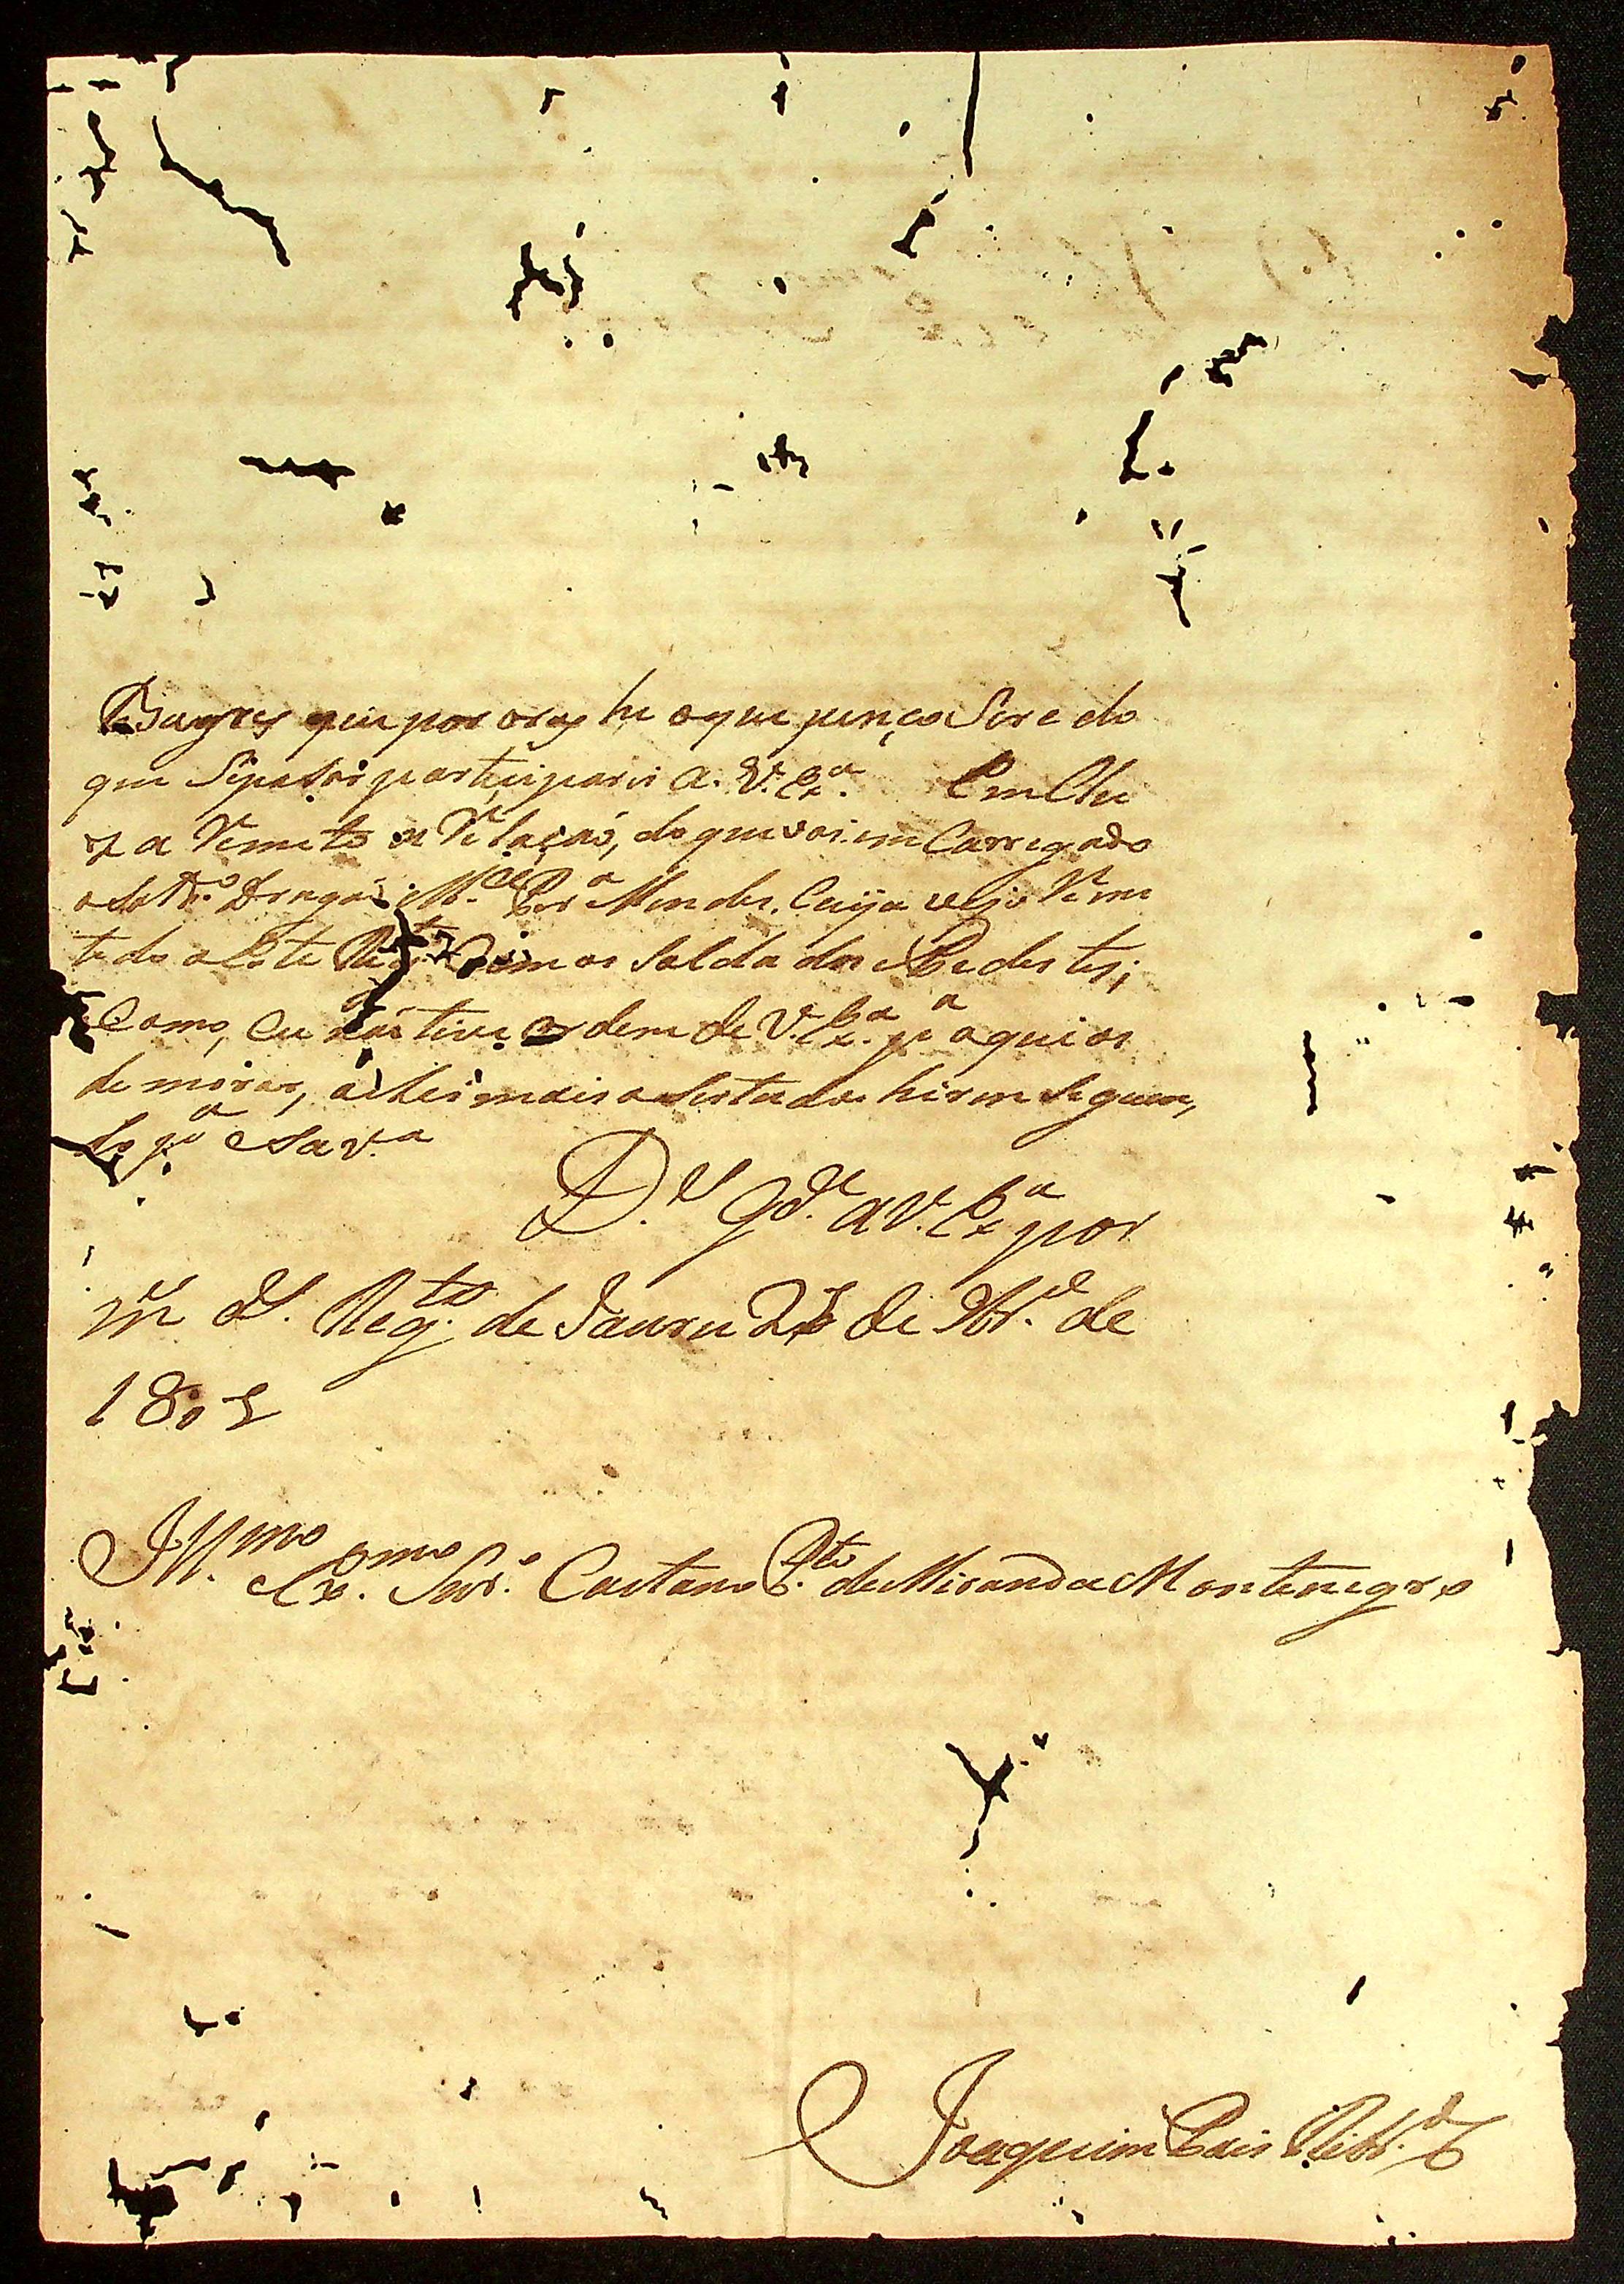 Bugres que por oraz he oque penço Sere do
que Sepasar participarei a. V. Exª. Em Clu
z a Remeto a Relaçaó, do que vai em Carregado
o Sold.º Dragaó M.el Prª Mendes, Cuja vejo Reme
tedo a Este Reg.to Com os Soldados Pedestes;
Como, Eu naó tive ordem de V. Exª. pª aqui os
demorar, achei mais asertado hirem Seguin,
do pª esa v.ª
D.s g.de a V. Exª por
m.s a.s Reg.to de Jauru de 9br.º de
180
Ill.mo Ex.mo Snr.º Caetano P.to de Miranda Montenegro
Joaquim Pais Ribr.º